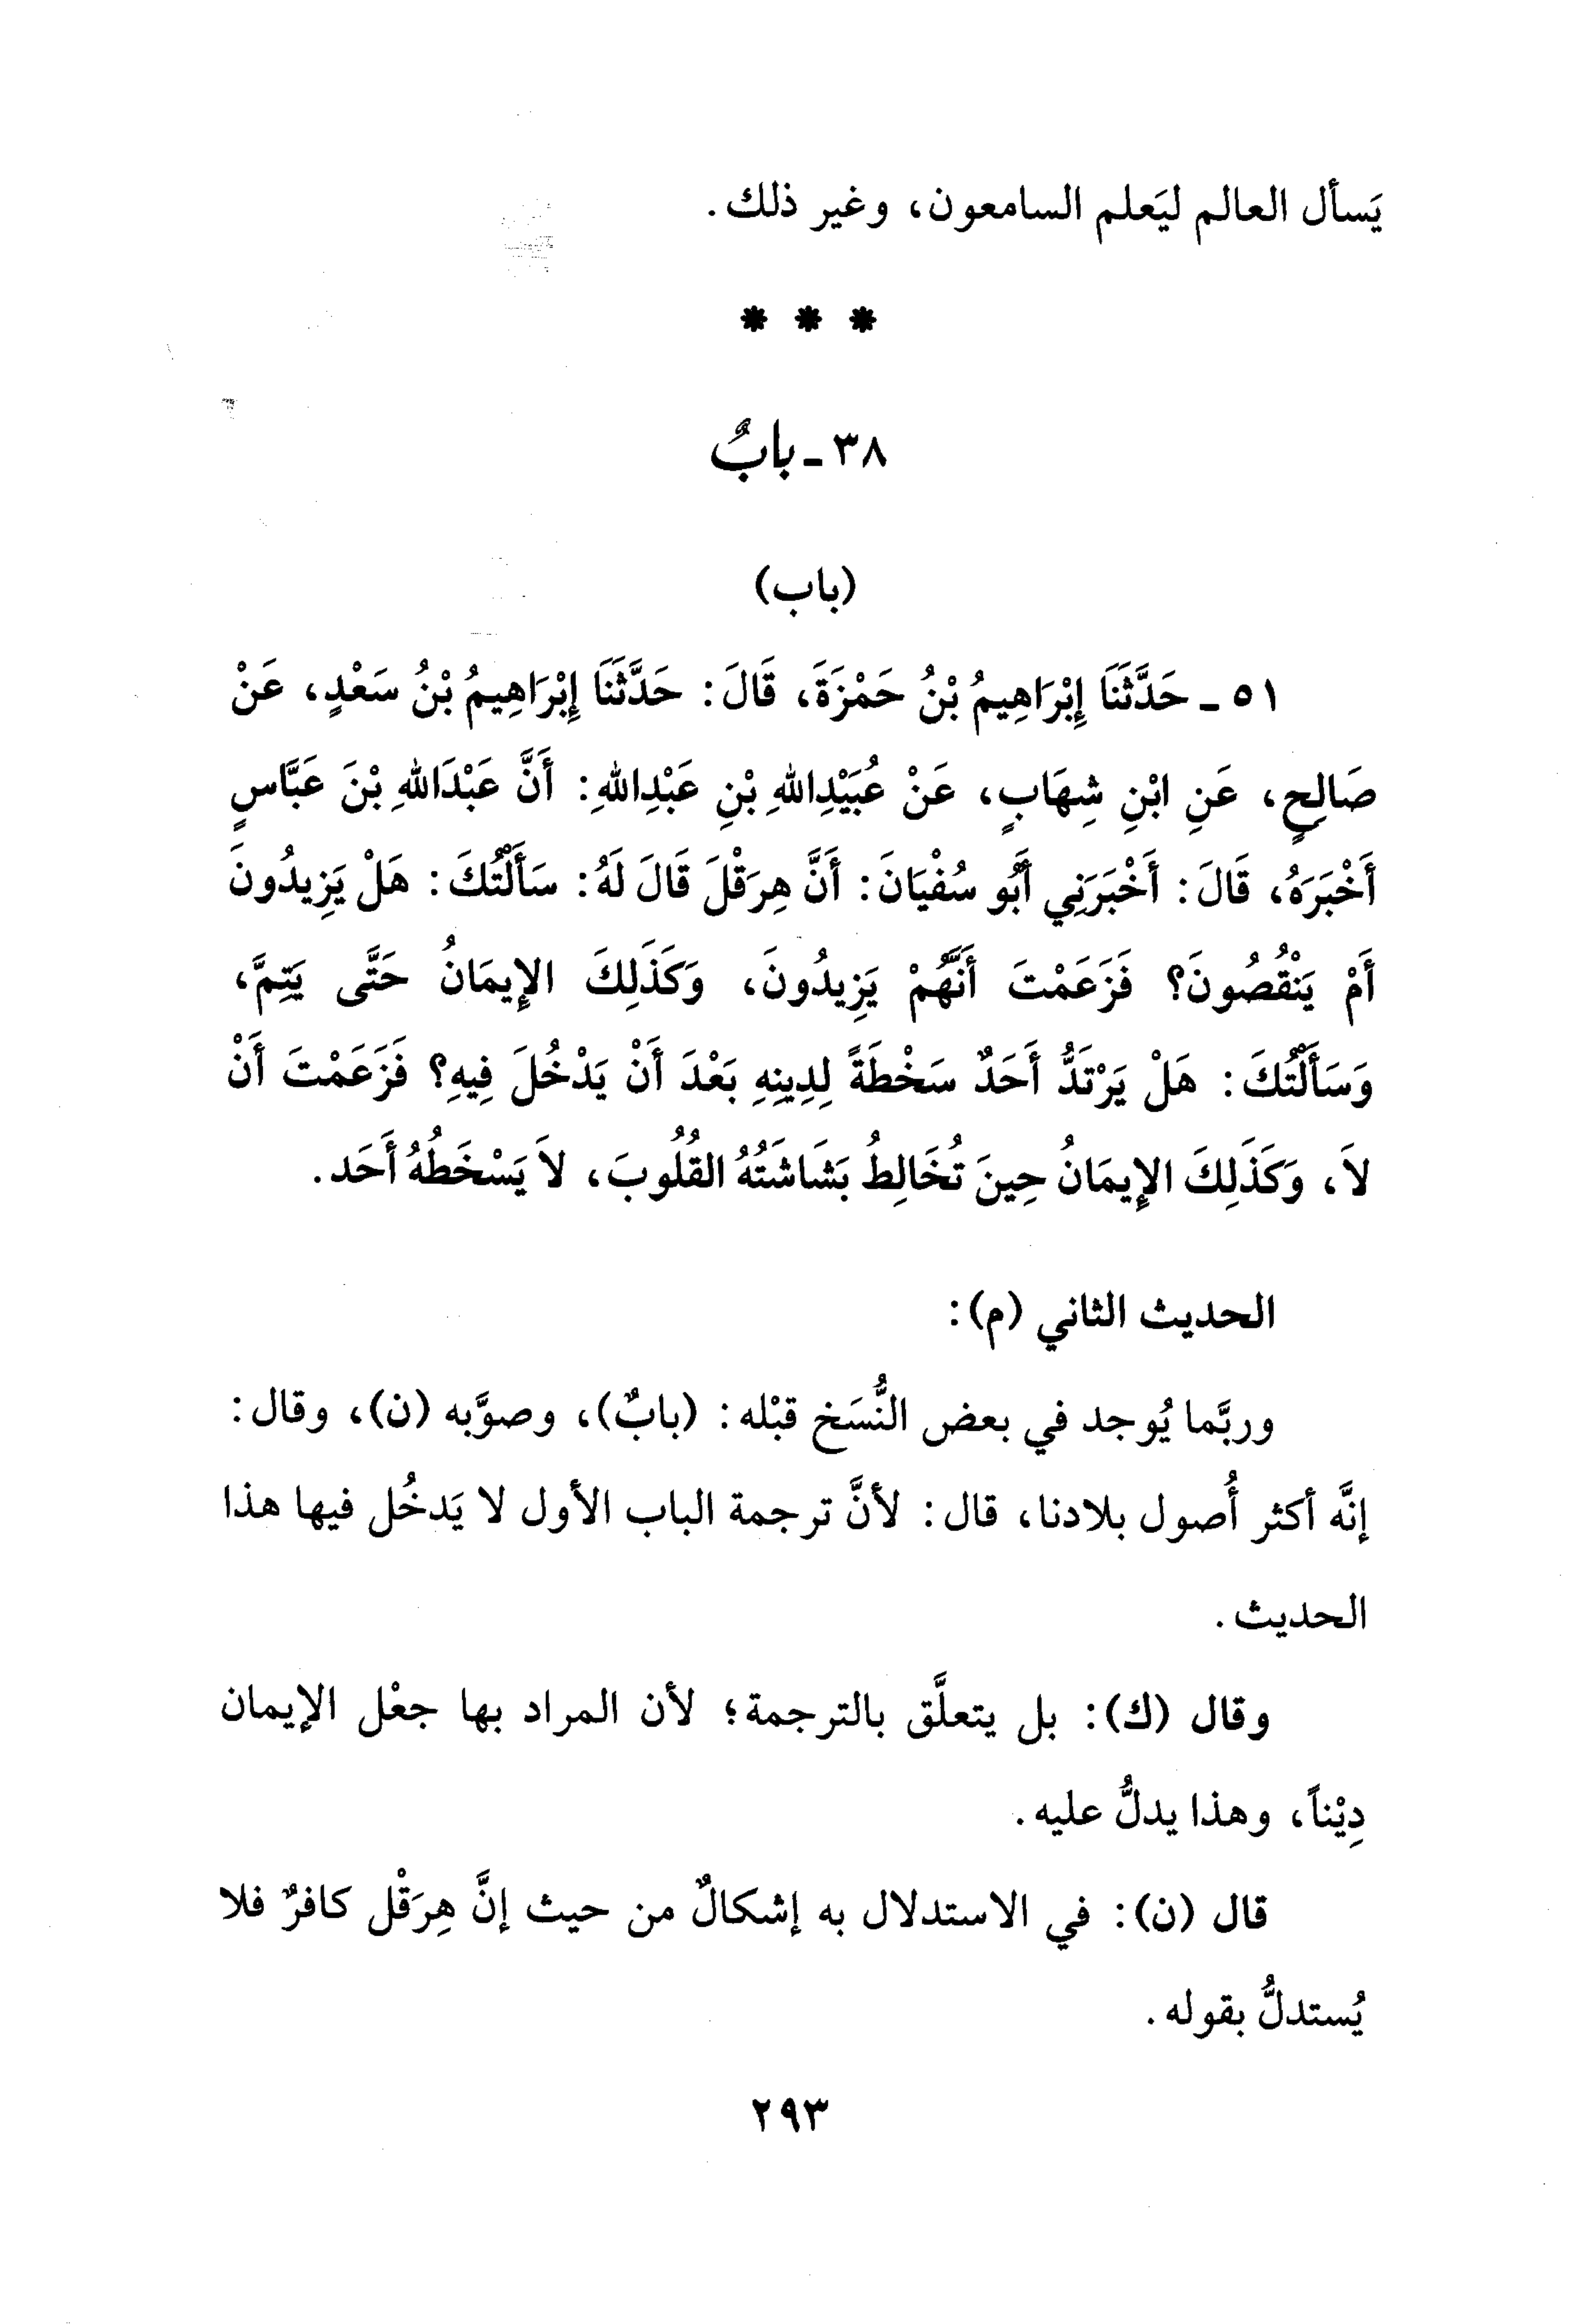 يَسأل العالم ليَعلم السامعون، وغير ذلك.
* * *
٣٨ - بابٌ
(باب)
٥١ - حَدَّثَنَا إِبْرَاهِيمُ بْنُ حَمْزَةَ، قَالَ: حَدَّثَنَا إِبْرَاهِيمُ بْنُ سَعْدٍ، عَنْ
صَالِحٍ، عَنِ ابْنِ شِهَابٍ، عَنْ عُبَيْدِاللهِ بْنِ عَبْدِاللهِ: أَنَّ عَبْدَاللهِ بْنَ عَبَّاسٍ
أَخْبَرَهُ، قَالَ: أَخْبَرَنِي أَبُو سُفْيَانَ: أَنَّ هِرَقْلَ قَالَ لَهُ: سَأَلْتُكَ: هَلْ يَزِيدُونَ
أَمْ يَنْقُصُونَ؟ فَزَعَمْتَ أَنَّهُمْ يَزِيدُونَ، وَكَذَلِكَ الإِيمَانُ حَتَّى يَتِمَّ،
وَسَأَلْتُكَ: هَلْ يَرْتَدُّ أَحَدٌ سَخْطَةً لِدِينِهِ بَعْدَ أَنْ يَدْخُلَ فِيهِ؟ فَزَعَمْتَ أَنْ
لاَ، وَكَذَلِكَ الإِيمَانُ حِينَ تُخَالِطُ بَشَاشَتُهُ القُلُوبَ، لاَ يَسْخَطُهُ أَحَد.
الحديث الثاني (م):
وربَّما يُوجد في بعض النُّسَخ قبْله: (بابٌ)، وصوَّبه (ن)، وقال:
إنَّه أكثر أُصول بلادنا، قال: لأنَّ ترجمة الباب الأول لا يَدخُل فيها هذا
الحديث.
وقال (ك): بل يتعلَّق بالترجمة؛ لأن المراد بها جعْل الإيمان
دِيْناً، وهذا يدلُّ عليه.
قال (ن): في الاستدلال به إشكالٌ من حيث إنَّ هِرَقْل كافرٌ فلا
يُستدلُّ بقوله.
٢٩٣